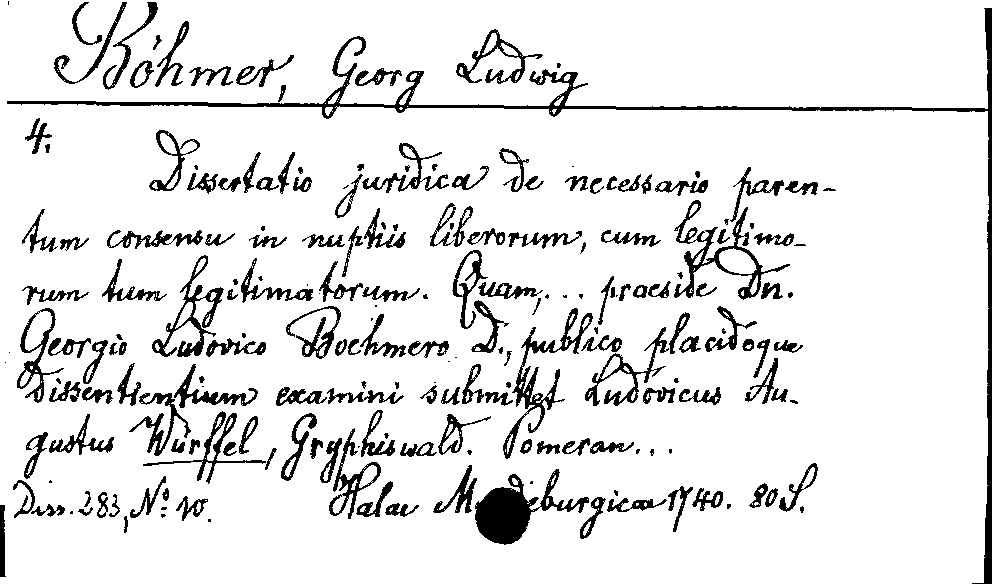 Böhmer, Georg Ludwig
4.
Dissertatio juridica de necessario paren-
tum consensu in nuptiis liberorum, cum legitimo-
rum tum legitimatorum. Quam,... praeside Dn.
Georgio Ludovico Boehmero D., publico placidoque
dissentientium examini submittet Ludovicus Au-
gustus Würffel, Gryphiswald. Pomeran...
Diss. 283, No. 10. Halae M deburgicae 1740. 80 S.